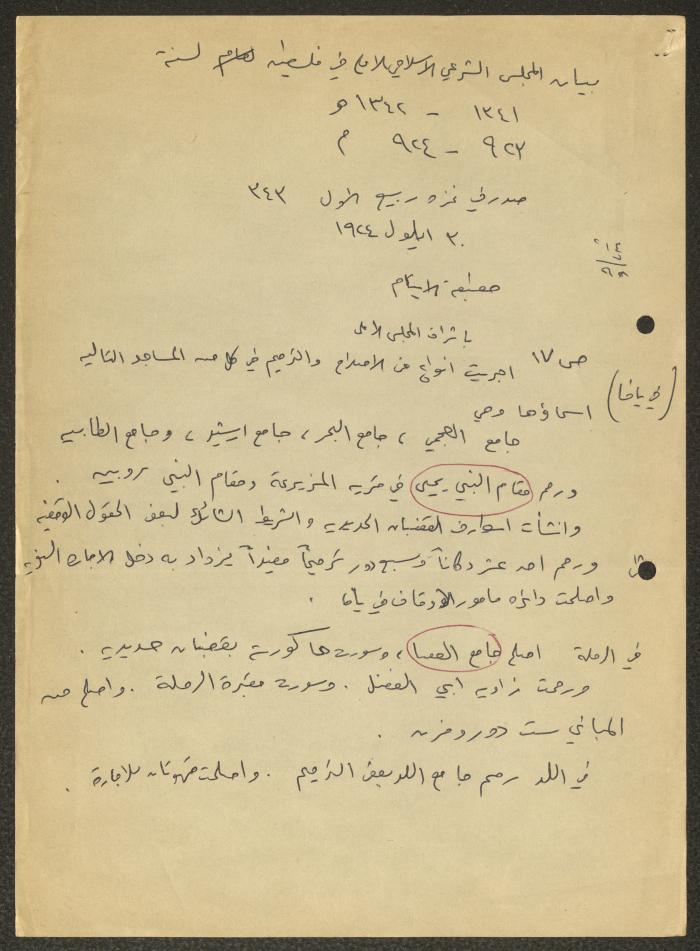 بيان المجلس الشرعي الاسلامي الاعلى في فلسطين لسنة
١٣٤١ - ١٣٤٢ هـ
٩٢٣ - ٩٢٤ م
صدر في غزه ربيع الاول ٣٤٣
٣٠ ايلول ١٩٢٤
مطبعة الايتام
باشراف المجلس الاعلى
ص ١٧ اجريت انواع من الاصلاح والترميم في كل من المساجد التاليه
(في يافا) اسماؤها وهي
جامع العجمي ، جامع البحر ، جامع ارشيد ، وجامع الطابيه
ورمم مقام النبي يحيى في قريه المزيرعة ومقام النبي روبيه .
وانشأت اسوار من القضبان الحديديه والشريط الشائك لبعض الحقول الوقفيه
١٨ ورمم احد عشر دكاناً وسبع دور ترميماً مفيداً يزداد به دخل الاجاره السنويه
واصلحت دائره مامور الاوقاف في يافا .
في الرملة اصلح جامع العصا ، وسورت حاكورته بقضبان حديديه .
ورممت زاويه ابي الفضل . وسورت مقبرة الرملة . واصلح من
المباني ست دور وفرن .
في اللد رمم جامع اللد بعض الترميم . واصلحت قهوتان للاجارة .